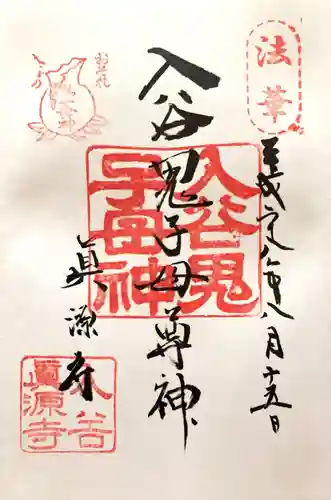 法華
平成八年八月十五日
入谷鬼子母尊神
入谷鬼
子母神
眞源寺
入谷
眞源寺